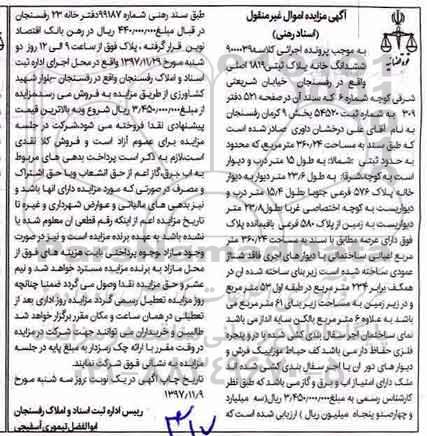 آگهی مزایده اموال غیرمنقول
(اسناد رهنی)
به موجب پرونده اجرائی کلاسه ۹۰۰۰۰۳۹
ششدانگ خانه پلاک ثبتی ۱۸۱۹ اصلی
واقع در رفسنجان خیابان شریعتی
شرقی کوچه شماره ۶ که سند آن در صفحه ۵۲۱ دفتر
۳۰۹ به شماره ثبت ۵۴۵۲۰ بخش ۹ کرمان رفسنجان
به نام آقای علی درخشان داوری صادر شده است
که طبق سند به مساحت ۳۶۰/۲۴ متر مربع، که محدود
به حدود ثبتی: شمالا: به طول ۱۵ متر درب و دیوار
است به کوچه شرقا: به طول ۲۳/۶ متر دیوار به دیوار
خانه پلاک ۵۷۶ فرعی جنوبا بطول ۱۵/۴ متر درب و
دیواریست به کوچه اختصاصی غربا بطول ۲۳/۸ متر
دیواریست به زمین از پلاک ۵۸۰ فرعی باقیمانده پلاک
فوق دارای عرصه مطابق با سند به مساحت ۳۶۰/۲۴ متر
مربع اعیانی ساختمانی با دیوارهای اجری فاقد شناژ
عمودی ساخته شده است زیربنای ساخته شده آن در
همکف برابر ۲۳۴ متر مربع در طبقه اول ۵۳ متر مربع
و در زیر زمین به مساحت زیر بنای ۶۱ متر مربع می
باشد به علاوه ۶ متر مربع بالکن سایه انداز می باشد
نمای ساختمان اجر سفال بندی کشی شده با در و پنجره
فلزی حفاظ دار می باشد کف حیاط موزاییک فرش و
دیوار های دور آن با اجر سفال بندی کشی شده این
ملک دارای امتیاز آب و برق و گاز می باشد که طبق نظر
کارشناس رسمی به مبلغ ۳/۴۵۰/۰۰۰/۰۰۰ ریال (سه میلیارد
و چهارصد و پنجاه میلیون ریال) ارزیابی شده است که
طبق سند رهنی شماره ۹۹۱۸۷ دفتر خانه ۲۳ رفسنجان
در قبال مبلغ ۴۴۰/۰۰۰/۰۰۰ ریال در رهن بانک اقتصاد
نوین قرار گرفته، پلاک فوق از ساعت ۹ الی ۱۲ روز دو
شنبه مورخ ۱۳۹۷/۱۱/۲۹ واقع در محل اجرای اداره ثبت
اسناد و املاک رفسنجان واقع در رفسنجان -بلوار شهید
کشاورزی از طریق مزایده به فروش می رسد. مزایده
از مبلغ ۳/۴۵۰/۰۰۰/۰۰۰ ریال شروع و به بالاترین قیمت
پیشنهادی نقدا فروخته می شود. شرکت در جلسه
مزایده برای عموم آزاد است و فروش کلا نقدی
است. لازم به ذکر است پرداخت بدهی های مربوط
به آب، برق، گاز اعم از حق انشعاب و یا حق اشتراک
و مصرف در صورتی که مورد مزایده دارای آنها باشد و
نیز بدهی های مالیاتی و عوارض شهرداری و غیره تا
تاریخ مزایده اعم از اینکه رقم قطعی آن معلوم شده یا
نشده باشد به عهده برنده مزایده است و نیز در صورت
وجود مازاد وجوه پرداختی بابت هزینه های فوق از
محل مازاد به برنده مزایده مسترد خواهد شد و نیم
عشر و حق مزایده نقدا وصول می گردد ضمنا چنانچه
روز مزایده تعطیل رسمی گردد مزایده روز اداری بعد از
تعطیلی در همان ساعت و مکان مقرر برگزار خواهد شد
طالبین و خریداران می توانند جهت شرکت در مزایده
در وقت مقرر با ارائه چک رمزدار به مبلغ پایه در جلسه
مزایده به نشانی فوق شرکت نمایند.
تاریخ چاپ آگهی در یک نوبت روز سه شنبه مورخ
۱۳۹۷/۱۱/۹
رییس اداره ثبت اسناد و املاک رفسنجان
ابوالفضل تیموری آسفیچی